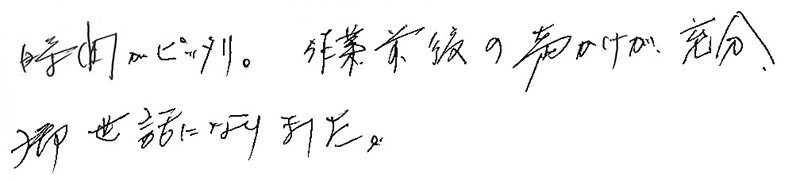 時間がピッタリ。 作業前後の声かけが充分、
御世話になりました。